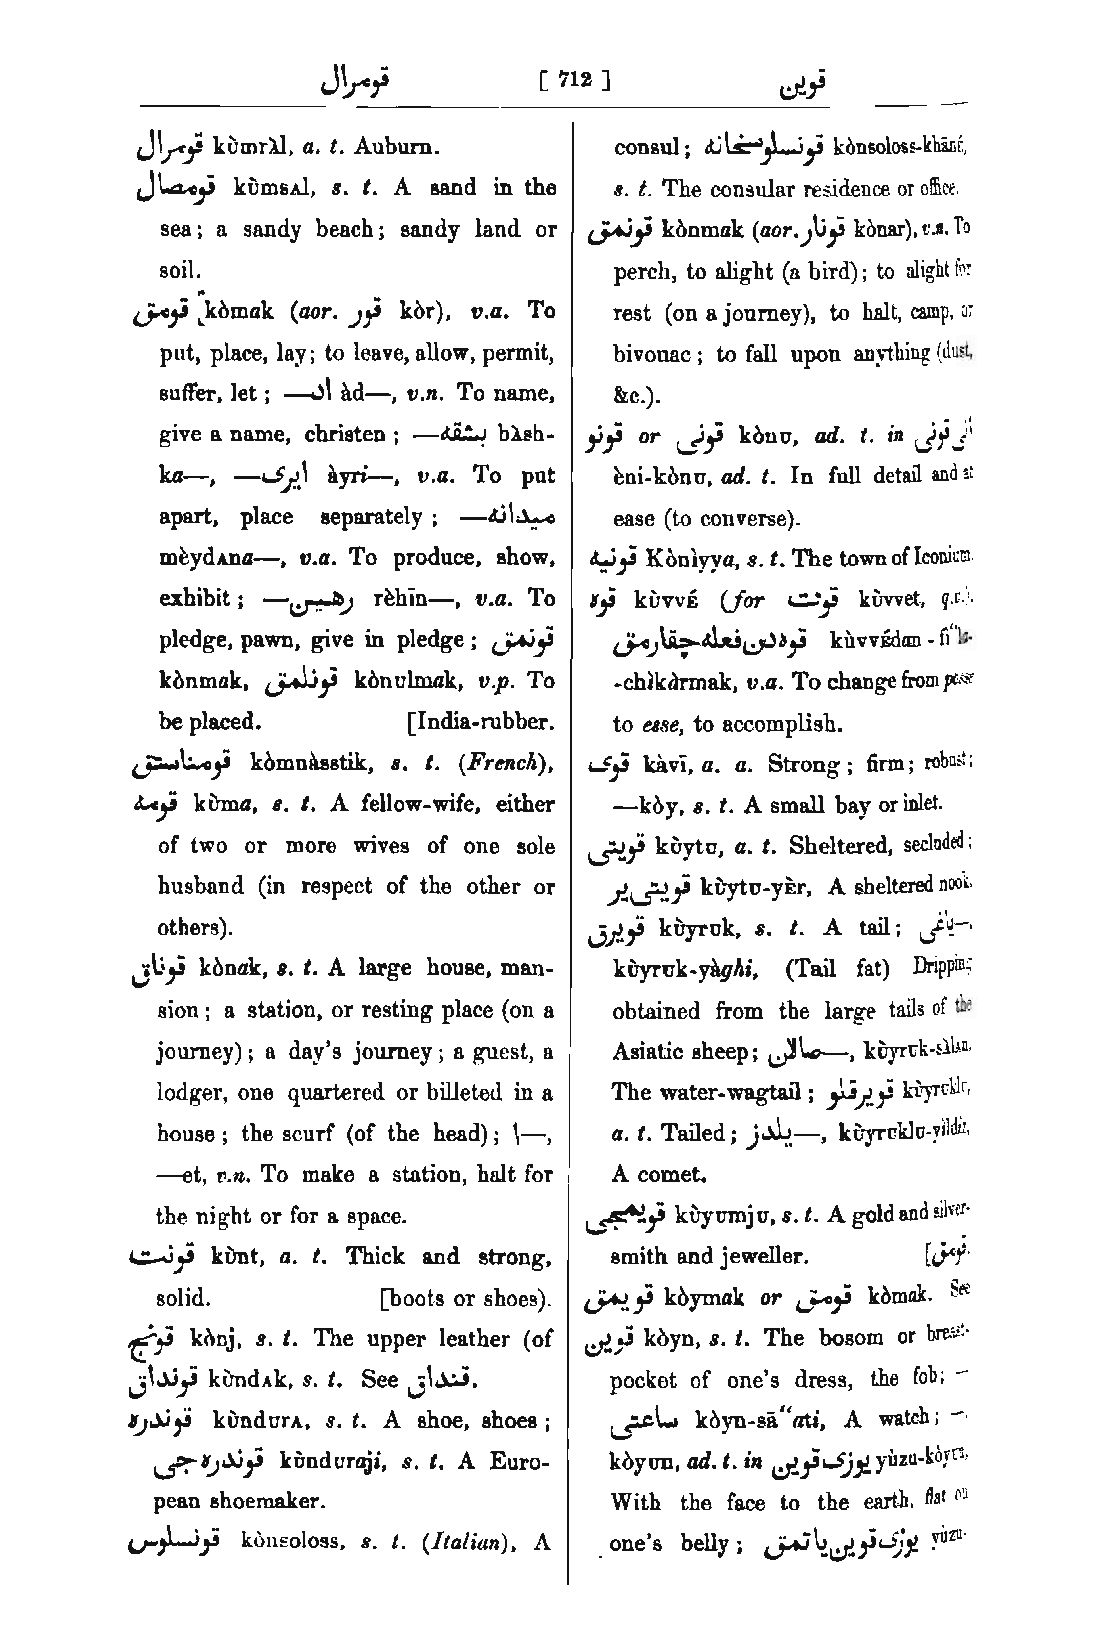 قومرال [ 712 ] قوین
قومرال kùmràl, a. t. Auburn.
قومصال kùmsAl, s. t. A sand in the
sea; a sandy beach; sandy land or
soil.
قومق kòmak (aor. قور kòr), v.a. To
put, place, lay; to leave, allow, permit,
suffer, let; —اد àd—, v.n. To name,
give a name, christen; —بشقه bàsh-
ka—, —ایری àyri—, v.a. To put
apart, place separately; —میدانه
mèydAna—, v.a. To produce, show,
exhibit; —رهین rèhīn—, v.a. To
pledge, pawn, give in pledge; قونمق
kònmak, قونلمق kònulmak, v.p. To
be placed. [India-rubber.
قومناستق kòmnàsstik, s. t. (French),
قومه kùma, s. t. A fellow-wife, either
of two or more wives of one sole
husband (in respect of the other or
others).
قوناق kònak, s. t. A large house, man-
sion; a station, or resting place (on a
journey); a day's journey; a guest, a
lodger, one quartered or billeted in a
house; the scurf (of the head); ا—,
—et, v.n. To make a station, halt for
the night or for a space.
قونت kùnt, a. t. Thick and strong,
solid. [boots or shoes).
قونج kònj, s. t. The upper leather (of
قونداق kùndAk, s. t. See قنداق.
قوندره kùndurA, s. t. A shoe, shoes;
قوندره‌جی kùnduraji, s. t. A Euro-
pean shoemaker.
قونسلوس kònsoloss, s. t. (Italian), A
consul; قونسلوسخانه kònsoloss-khānÉ,
s. t. The consular residence or office.
قونمق kònmak (aor. قونار kònar), v.n. To
perch, to alight (a bird); to alight for
rest (on a journey), to halt, camp, or
bivouac; to fall upon anything (dust,
&c.).
قونو or قونی kònu, ad. t. in قونی
èni-kònu, ad. t. In full detail and at
ease (to converse).
قونیه Kònìyya, s. t. The town of Iconium.
قوه kùvvÉ (for قوت kùvvet, q.v.).
قوه‌دن فعله چقارمق kùvvÉdan-fi“la-
-chìkàrmak, v.a. To change from posse
to esse, to accomplish.
قوی kàvī, a. a. Strong; firm; robust;
—kòy, s. t. A small bay or inlet.
قویتی kùytu, a. t. Sheltered, secluded;
قویتی یر kùytu-yÈr, A sheltered nook.
قویرق kùyruk, s. t. A tail; —یاغی,
kùyruk-yàghi, (Tail fat) Dripping
obtained from the large tails of the
Asiatic sheep; —صالان, kùyruk-sàlAn,
The water-wagtail; قویرقلو kùyruklu,
a. t. Tailed; —یلدز, kùyruklu-yildiz,
A comet.
قویمجی kùyumju, s. t. A gold and silver-
smith and jeweller. [قومق.
قویمق kòymak or قومق kòmak. See
قوین kòyn, s. t. The bosom or breast-
pocket of one's dress, the fob; —
ساعتی kòyn-sā“ati, A watch; —,
kòyun, ad. t. in یوزی قوین yùzu-kòyun,
With the face to the earth, flat on
one's belly; یوزی قوین یاتمق yùzu-